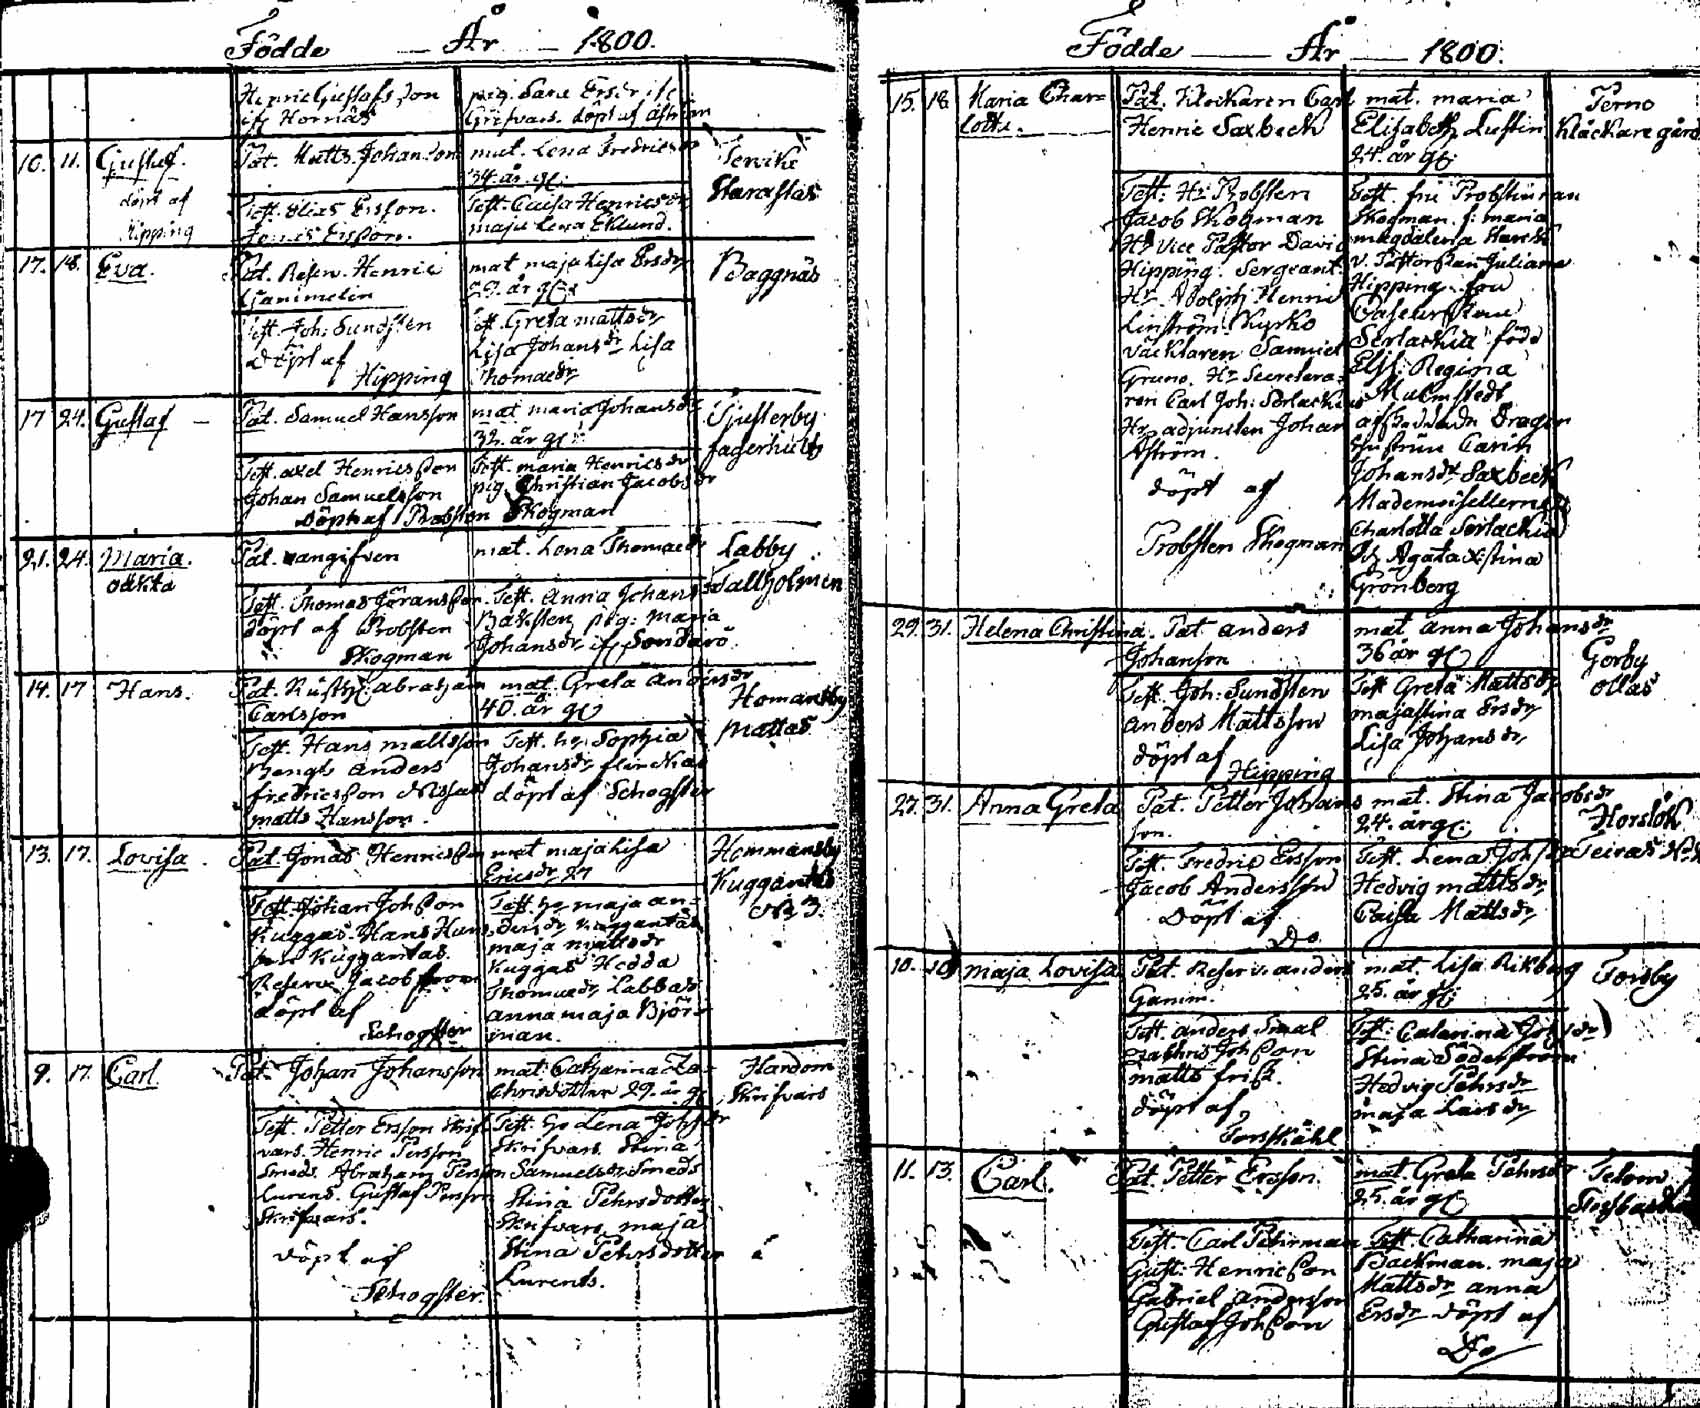 Födde — År — 1800.
Henric Gustafsson
if Hornäs
pig. Sara Ersdr if
Grefvars. döpt af Åström
16. 11. Gustaf.
döpt af
Hipping
Pat. Matts Johansson
mat. Lena Fredricsdr
34. år gl:
Tervike
Starastas
Test. Elias Ersson.
Jonas Ersson.
Test. Caisa Henricsdr
maja Lena Eklund.
17. 18. Eva.
Pat. Reserv. Henric
Gammelin
mat maja Lisa Ersdr
29. år gl:
Baggnäs
Test. Joh: Sundsten
Döpt af
Hipping
Test. Greta mattsdr
Lisa Johansdr Lisa
Thomasdr
17 24. Gustaf —
Pat. Samuel Hansson
mat maria Johansdr
32. år gl:
Tjusterby
fagerhult
Test. axel Henricsson
Johan Samuelsson
Döpt af Probsten Skogman
Test. maria Henricsdr
pig Christian Jacobsdr
21. 24. Maria.
oäkta
Pat. oangifven
mat. Lena Thomasdr
Labby
Tallholmen
Test. Thomas Göransson.
döpt af Probsten
Skogman
Test. Anna Johansdr
Backsten, pig: Maria
Johansdr if Sondarö
14. 17 Hans.
Pat. Rusth: abraham
Carlsson
mat. Greta Andersdr
40. år gl
Homansby
Mattas
Test. Hans mattsson
Bengts anders
fredricsson Nissas
matts Hansson.
Test. hu Sophia
Johansdr
döpt af Schogster
13. 17. Lovisa.
Pat. Jonas Henricsson
mat maja Lisa
Ericsdr 27
Hemmansby
Kuggantas
No 3.
Test. Johan Johsson
Kuggas. Hans Hans
son Kuggantas.
Reserv Jacob from
döpt af
Schogster
Test. hu maja an-
dersdr Kuggantas
maja mattsdr
Kuggas Hedda
Thomasdr Labbas
anna maja Björ-
man.
9. 17. Carl
Pat. Johan Johansson
mat Catharina Za-
chrisdotter 29. år gl
Handom
Skrifvars
Test. Petter Ersson Skrif-
vars. Henric Persson
Smeds. Abraham Persson
Lurens. Gustaf Persson
Skrifvars.
döpt af
Schogster
Test. Hu Lena Johsdr
Skrifvars. Stina
Samuelsdr Smeds
Stina Pehrsdotter
Skrifvars maja
Stina Pehrsdotter
Lurents.
Födde — År — 1800.
15. 18. Maria Char=
lotta.
Pat. Klockaren Carl
Henric Saxbeck
mat. maria
Elisabeth Lustin
24. år gl:
Perno
Kläckare gård
Test: Hr Probsten
Jacob Skogman
Hr Vice Pastor David
Hipping. Sergeant.
Hr Adolph Henric
Linström. Kyrko
väcktaren Samuel
Gruno. Hr Secretera-
ren Carl Joh: Serlachius
Hr adjuncten Johan
Åström.
döpt af
Probsten Skogman
Test. fru Probstinnan
Skogman. f: maria
magdalena
v. Pastorskan Juliana
Hipping. fru
Serlachia född
Elis: Regina
Malmstedt
Hustrun Carin
Johansdr Saxbeck
Mademoisellerna
Charlotta Serlachia
Och Agata Xstina
Grönberg
29. 31. Helena Christina.
Pat anders
Johanson
mat anna Johansdr
36 år gl
Gerby
ollas
Test. Joh: Sundsten
Anders Mattsson
döpt af
Hipping
Test Greta Mattsdr
majastina Ersdr
Lisa Johansdr
27. 31. Anna Greta
Pat. Petter Johans
son.
mat. Stina Jacobsdr
24. år gl.
Horslök
Teiras
Test. Fredric Ersson
Jacob Andersson
Döpt af
Do
Test. Lena Johsdr
Hedvig mattsdr
Caisa Mattsdr
10. 10 maja Lovisa
Pat. Reserv. anders
Gamm.
mat. Lisa Rikberg
25. år gl:
Forsby
Test anders Smal
Zachris Johsson
matts frisk.
döpt af,
Forsskåhl
Test: Catarina Johsdr
Stina Söderström
Hedvig Pehrsdr
maja Larsdr
11. 13. Carl.
Pat. Petter Ersson.
mat. Greta Pehrsdr
25. år gl
Test. Carl Pehrman
Gust. Henricsson
Gabriel Andersson
Gustaf Johsson
Test. Catharina
Backman. maja
Mattsdr anna
Ersdr döpt af
Do